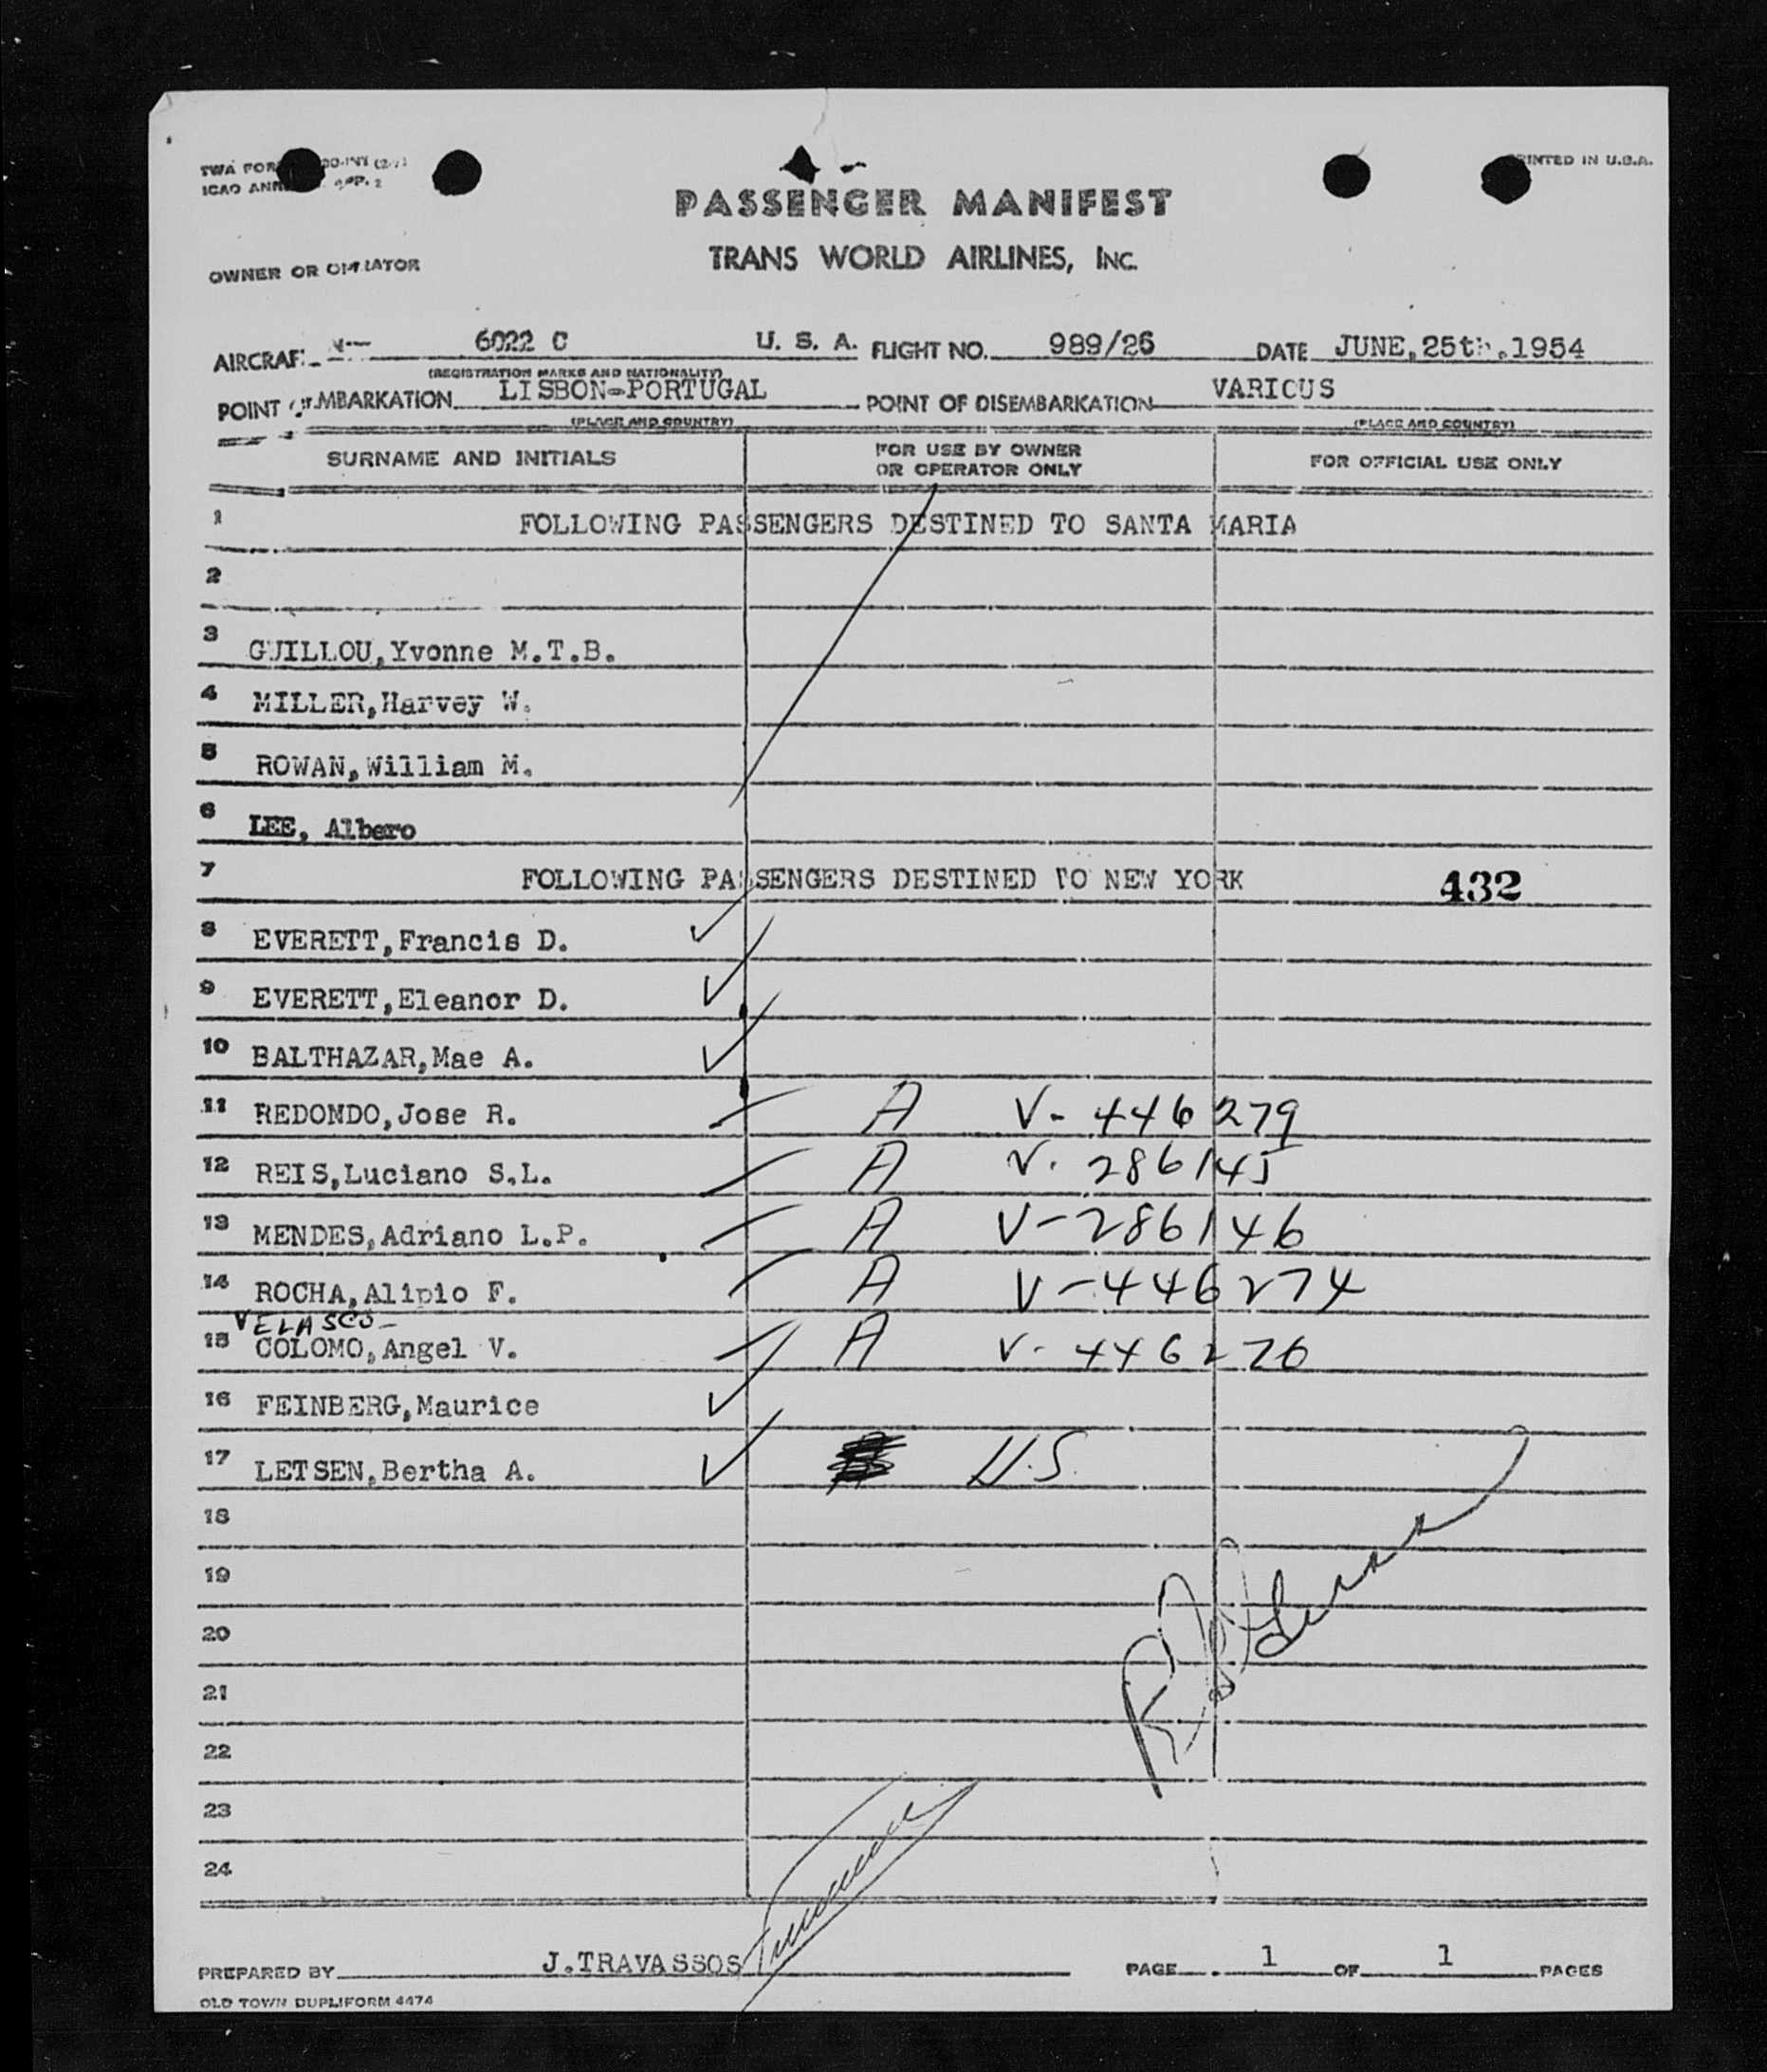 TWA FOR
ICAO ANN APP. 2
PRINTED IN U.S.A.
PASSENGER MANIFEST
TRANS WORLD AIRLINES, INC.
OWNER OR OPERATOR
AIRCRAFT N- 6022 C U. S. A. FLIGHT NO. 989/26 DATE JUNE,25th.1954
(REGISTRATION MARKS AND NATIONALITY)
POINT OF EMBARKATION LISBON-PORTUGAL POINT OF DISEMBARKATION VARIOUS
(PLACE AND COUNTRY) (PLACE AND COUNTRY)
SURNAME AND INITIALS FOR USE BY OWNER OR OPERATOR ONLY FOR OFFICIAL USE ONLY
1 FOLLOWING PASSENGERS DESTINED TO SANTA MARIA
2
3 GUILLOU,Yvonne M.T.B.
4 MILLER,Harvey W.
5 ROWAN,William M.
6 LEE, Albero
7 FOLLOWING PASSENGERS DESTINED TO NEW YORK 432
8 EVERETT,Francis D.
9 EVERETT,Eleanor D.
10 BALTHAZAR,Mae A.
11 REDONDO,Jose R. A V- 446279
12 REIS,Luciano S.L. A V. 286145
13 MENDES,Adriano L.P. A V-286146
14 ROCHA,Alipio F. A V-446274
VELASCO-
15 COLOMO,Angel V. A V- 446276
16 FEINBERG,Maurice
17 LETSEN,Bertha A. U.S.
18
19
20
21
22
23
24
PREPARED BY J.TRAVASSOS PAGE 1 OF 1 PAGES
OLD TOWN DUPLIFORM 4474